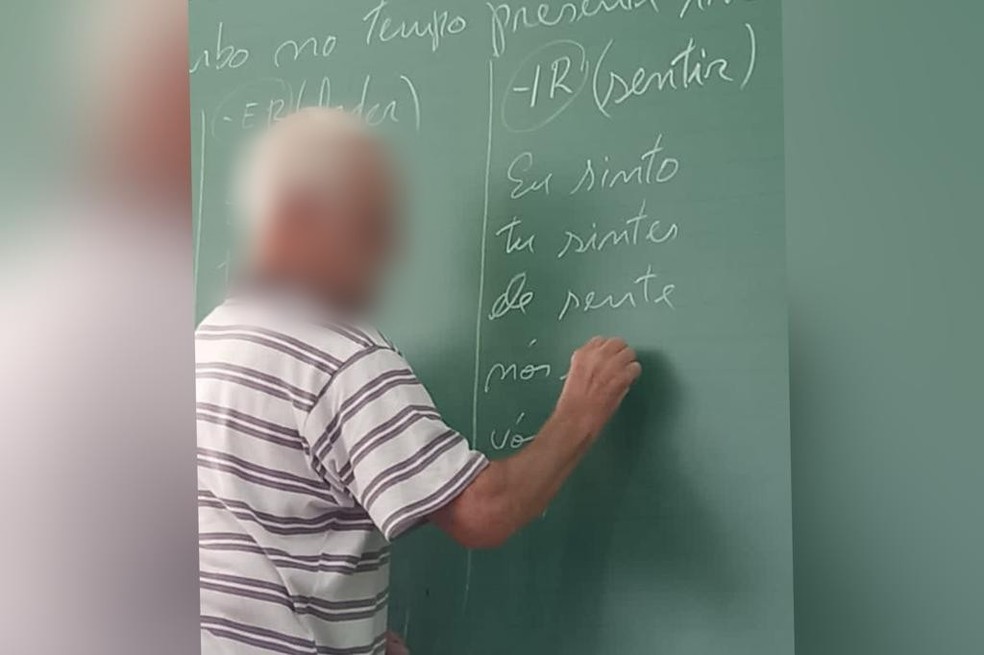 no tempo presente
-ER
-IR (sentir)
Eu sinto
tu sintes
ele sente
nós
vó